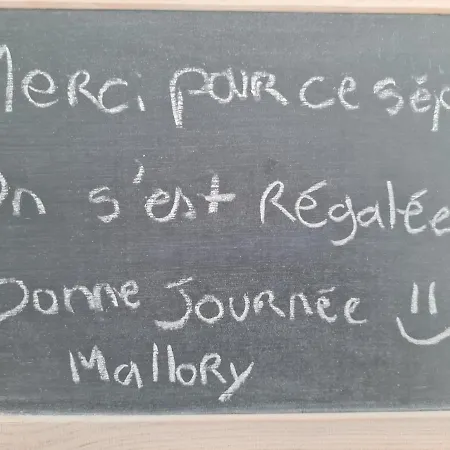 Merci pour ce séj
On s'est Régalée
Bonne Journée
Mallory